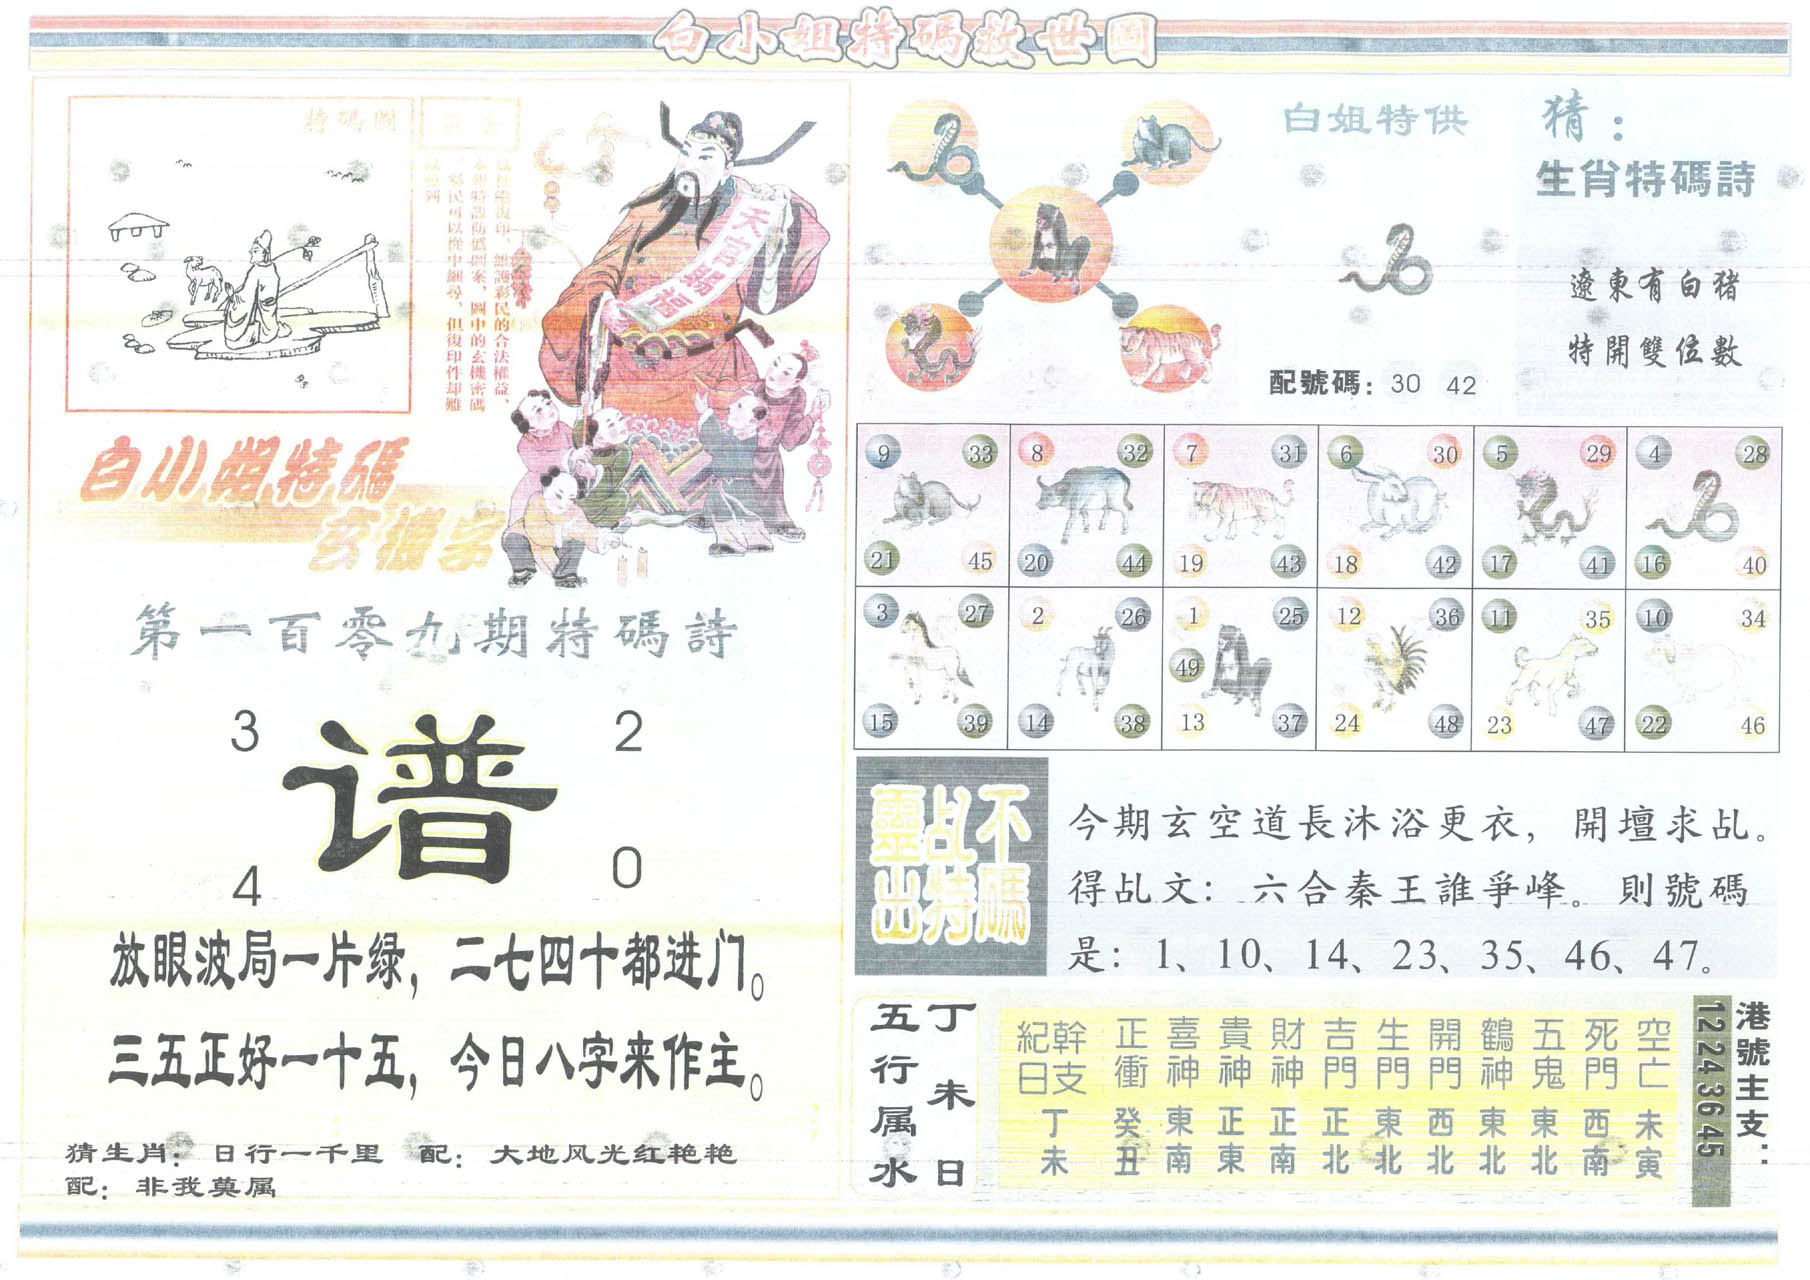 白小姐特碼救世圖
特碼圖
本報特設防僞圖案、圖中的玄機密碼
彩民可以從中細尋、但復印件却難
以分到
天官賜福
白小姐特碼
玄機字
第一百零九期特碼詩
3 2
谱
4 0
放眼波局一片绿，二七四十都进门。
三五正好一十五，今日八字来作主。
猜生肖：日行一千里 配：大地风光红艳艳
配：非我莫属
白姐特供
配號碼：30 42
猜：
生肖特碼詩
遼東有白猪
特開雙位數
9 33 8 32 7 31 6 30 5 29 4 28
21 45 20 44 19 43 18 42 17 41 16 40
3 27 2 26 1 25 12 36 11 35 10 34
49
15 39 14 38 13 37 24 48 23 47 22 46
不碼
乩特
靈出
今期玄空道長沐浴更衣，開壇求乩。
得乩文：六合秦王誰爭峰。則號碼
是：1、10、14、23、35、46、47。
丁未日
五行属水
幹支紀日 正衝 喜神 貴神 財神 吉門 生門 開門 鶴神 五鬼 死門 空亡
丁未 癸丑 東南 正東 正南 正北 東北 西北 東北 東北 西南 未寅
港號主支：
12 24 36 45